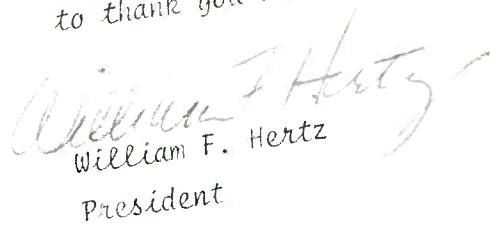 to thank you
William F Hertz
William F. Hertz
President